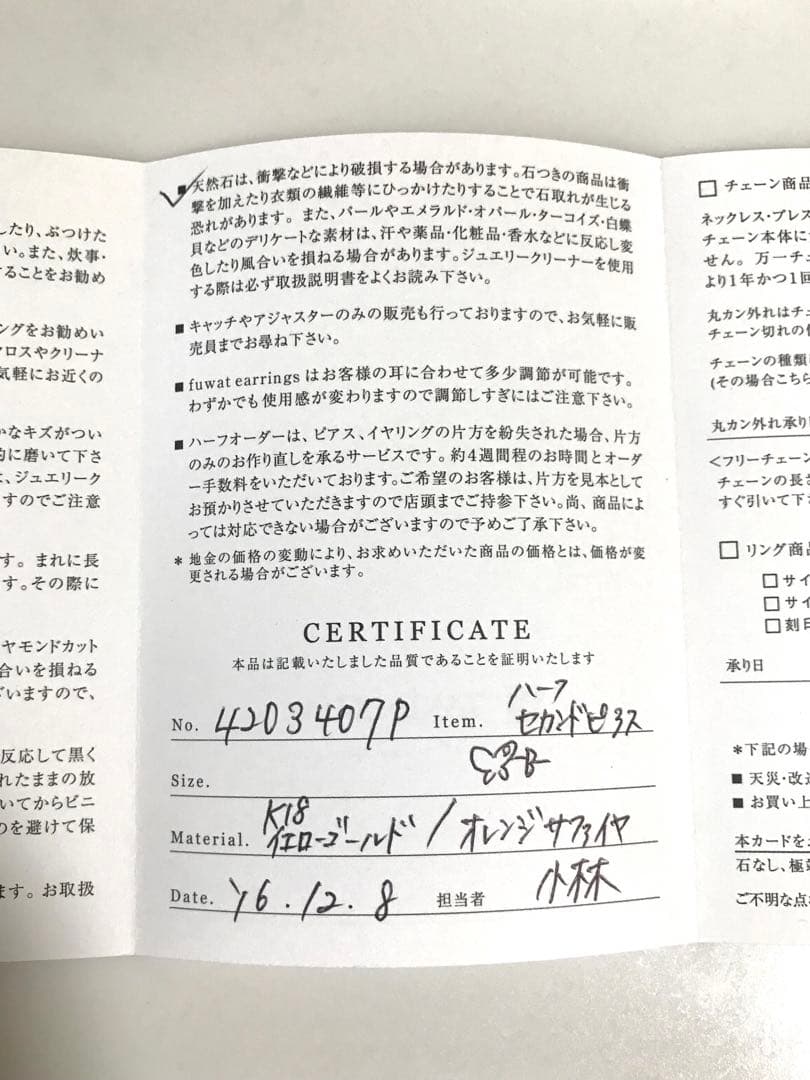 したり、ぶつけた
い。また、炊事・
することをお勧め
ングをお勧めい
クロスやクリーナ
気軽にお近くの
かなキズがつい
的に磨いて下さ
は、ジュエリーク
すのでご注意
す。まれに長
す。その際に
ヤモンドカット
合いを損ねる
ざいますので、
反応して黒く
れたままの放
いてからビニ
のを避けて保
ます。お取扱
■ 天然石は、衝撃などにより破損する場合があります。石つきの商品は衝
撃を加えたり衣類の繊維等にひっかけたりすることで石取れが生じる
恐れがあります。また、パールやエメラルド・オパール・ターコイズ・白蝶
貝などのデリケートな素材は、汗や薬品・化粧品・香水などに反応し変
色したり風合いを損ねる場合があります。ジュエリークリーナーを使用
する際は必ず取扱説明書をよくお読み下さい。
■ キャッチやアジャスターのみの販売も行っておりますので、お気軽に販
売員までお尋ね下さい。
■ fuwat earrings はお客様の耳に合わせて多少調節が可能です。
わずかでも使用感が変わりますので調節しすぎにはご注意下さい。
■ ハーフオーダーは、ピアス、イヤリングの片方を紛失された場合、片方
のみのお作り直しを承るサービスです。約4週間程のお時間とオーダ
ー手数料をいただいております。ご希望のお客様は、片方を見本として
お預かりさせていただきますので店頭までご持参下さい。尚、商品によ
っては対応できない場合がございますので予めご了承下さい。
* 地金の価格の変動により、お求めいただいた商品の価格とは、価格が変
更される場合がございます。
CERTIFICATE
本品は記載いたしました品質であることを証明いたします
No. 4203407P Item. ハーフ
セカンドピアス
Size.
Material. K18
イエローゴールド / オレンジサファイヤ
Date. '16.12.8 担当者 小林
□ チェーン商品
ネックレス・ブレス
チェーン本体に
せん。万一チェ
より1年かつ1回
丸カン外れはチェ
チェーン切れの
チェーンの種類
(その場合こちら
丸カン外れ承り
<フリーチェーン
チェーンの長さ
すぐ引いて下さ
□ リング商品
□ サイ
□ サイ
□ 刻印
承り日
*下記の場
■ 天災・改造
■ お買い上
本カードを
石なし、極端
ご不明な点